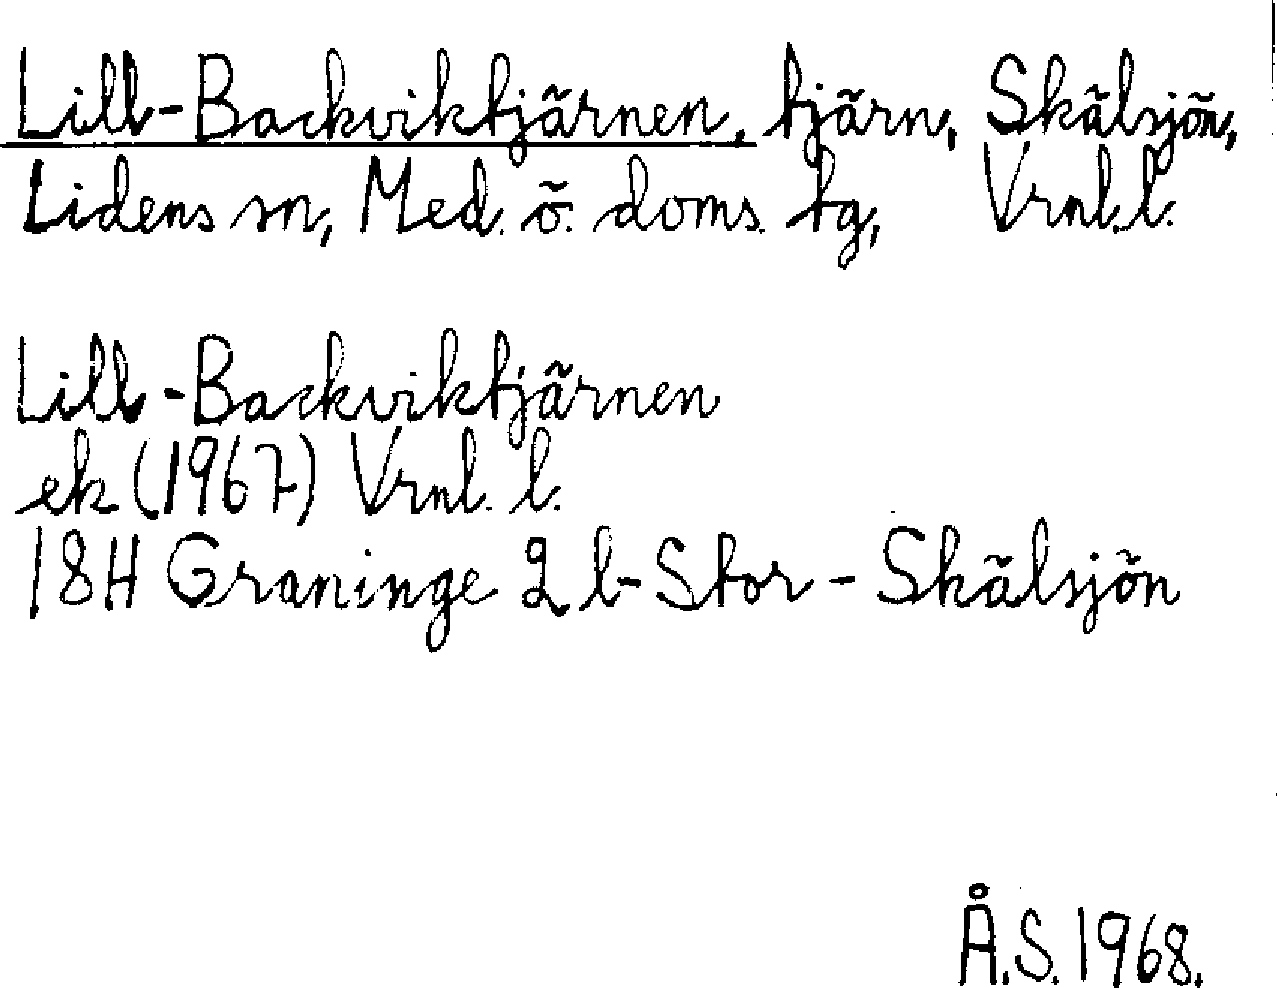 Lill-Backviktjärnen, tjärn, Skälsjön,
Lidens sn, Med. ö. doms. tg, Vrnl. l.
Lill-Backviktjärnen
ek (1967) Vrnl. l.
18H Graninge 2 b-Stor-Skälsjön
Å.S. 1968.